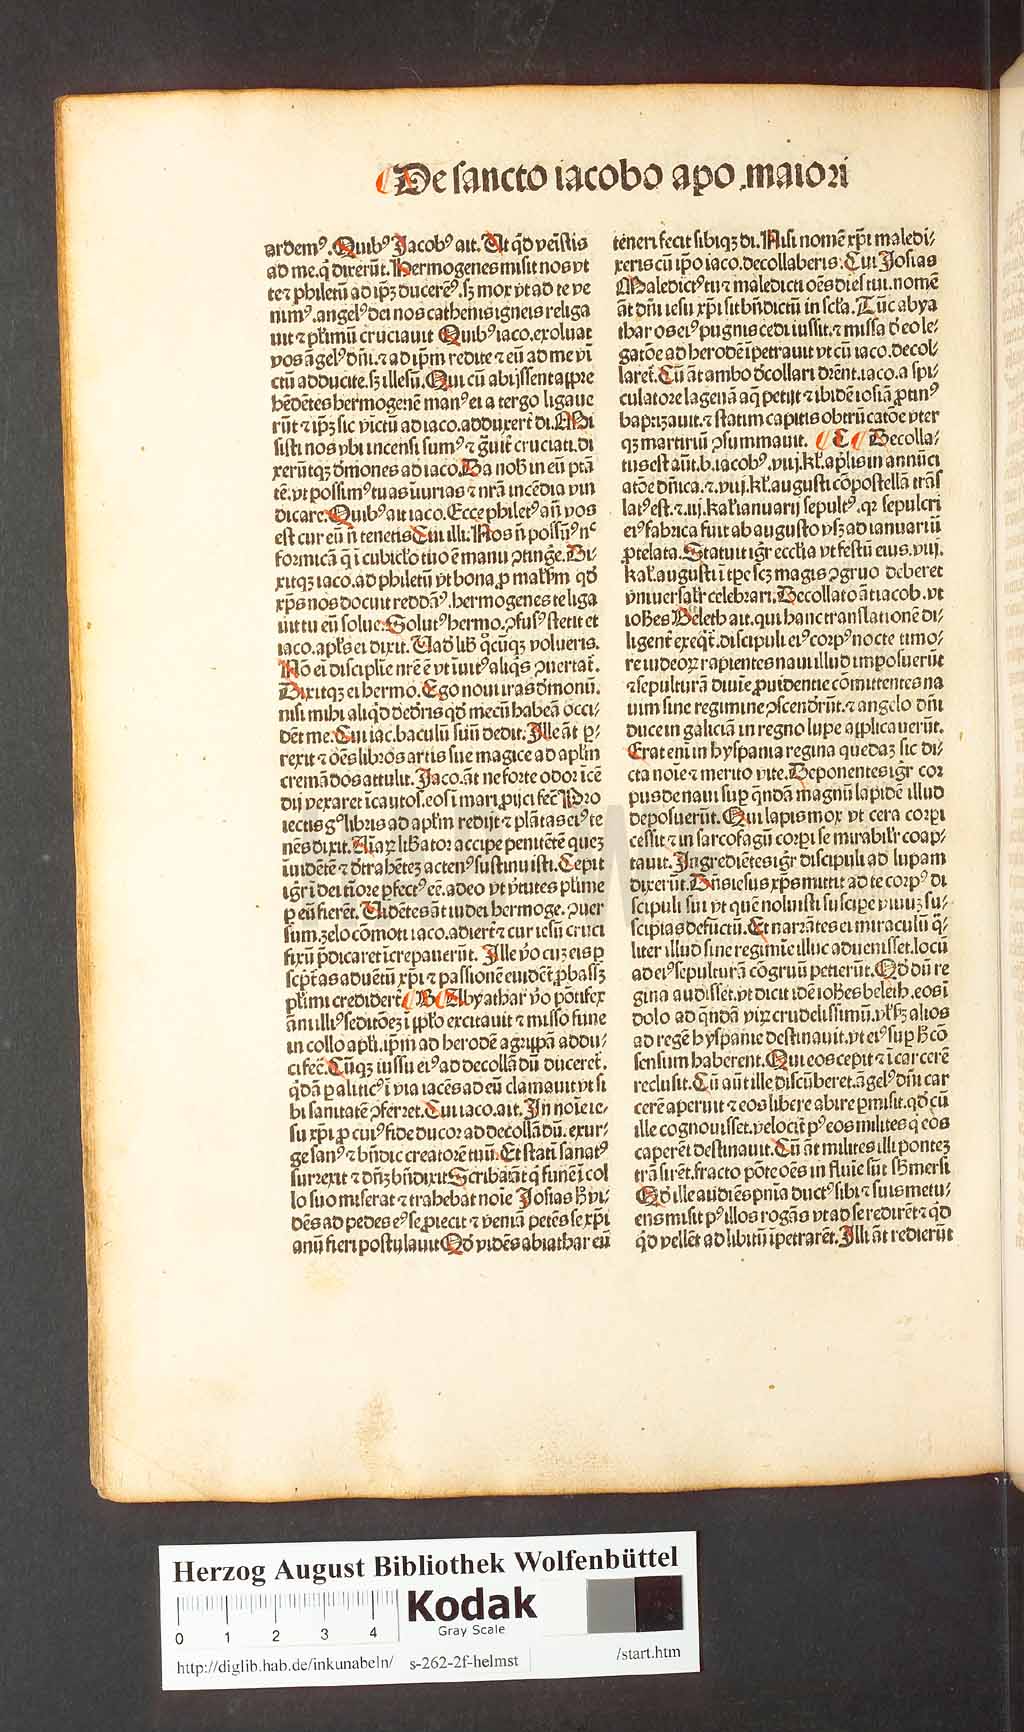 De sancto iacobo apo .maiori
ardemꝰ. Quibꝰ Jacobꝰ ait. Ut qͥd venistis
ad me. qͥ dixerūt. Hermogenes misit nos vt
te ⁊ philetū ad ip̄ꝫ ducerēꝰ. sꝫ mox vt ad te ve
nimꝰ. angelꝰ dei nos cathenis igneis religa
uit ⁊ plimū cruciauit Quibꝰ iaco. exoluat
vos āgelꝰ dn̄i. ⁊ ad ip̄m redite ⁊ eū ad me vi
ctū adducite. sꝫ illesū. Qui cū abijssent appre
hēdētes hermogenē manꝰ ei a tergo ligaue
rūt ⁊ ip̄ꝫ sic vīctū ad iaco. adduxert̄ di. Mi
sisti nos vbi incensi sumꝰ ⁊ g̈uit̄ cruciati. di
xerūtqꝫ d̄mones ad iaco. Da nob̄ in eū ptā
tē. vt possimꝰ tuas iniurias ⁊ nrā incēdia vin
dicare. Quibꝰ ait iaco. Ecce philetꝰ an̄ vos
est cur eū n̄ tenetis Cui illi. Nos n̄ possūꝰ nͨ
formicā q̄ ī cubicl̓o tuo ē manu ꝯtinge. Di
xitqꝫ iaco. ad philetū vt bona ꝓ malꝭ̄m qd̄
xp̄s nos docuit reddāꝰ. hermogenes te liga
uit tu eū solue. Solutꝰ hermo. ꝯfusꝰ stetit et
iaco. apl̓s ei dixit. Uad̄ lib̄ qͦcūqꝫ volueris.
Nō ei disciplīe nr̄e ē vt īuitꝰ aliqͥs ꝯuertat̄.
Dixitqꝫ ei hermo. Ego noui iras d̄monū.
nisi mihi aliqͥd ded̓ris qd̓ mecū habeā occi⸗
dēt me. Cui iac. baculū suū dedit. Ille āt p̱⸗
rexit ⁊ oēs libros artis sue magice ad apl̄m
cremādos attulit. Jaco. āt ne forte odor īcē
dij vexaret īcautos. eos ī mari ꝓijci fec̄ libro
iectis g̊ libris ad apl̄m redijt ⁊ plātas eiꝰ te
nēs dixit. Aīaꝝ lib̓ator accipe penitētē queꝫ
īuidētē ⁊ d̓trahētē actenꝰ sustinuisti. Cepit
igr̄ ī dei tīore ꝑfectꝰ eē. adeo vt ṽtutes plīme
ꝑ eū fierēt. Uidētes āt iudei hermoge. ꝯuer
sum. zelo cōmoti iaco. adiert̄ ⁊ cur iesū cruci
fixū p̄dicaret īcrepauerūt. Ille ṽo cuꝫ eis ꝑ
scp̄tas aduētū xp̄i ⁊ passionē euidēt̄ ꝓbassꝫ
plīmi credidert̄ B Abyathar ṽo pōtifex
anī illiꝰ seditōeꝫ ī pplo excitauit ⁊ misso fune
in collo apl̓i. ip̄m ad herodē agrippā addu⸗
ci fec̄. Cūqꝫ iussu eiꝰ ad decollādū duceret̄.
qͥdā ꝑalitic̄ ī via iacēs ad eū clamauit vt si
bi sanitatē ꝯferret. Cui iaco. ait. In noīe ie⸗
su xp̄i ꝓ cuiꝰ fide ducor ad decollādū. exur⸗
ge sanꝰ ⁊ bn̄dic creatorē tuū. Et statī sanatꝰ
surrexit ⁊ dn̄ꝫ bn̄dixit Scriba āt qͥ funē ī col
lo suo miserat ⁊ trahebat noīe Josias h̓ vi⸗
dēs ad pedes eꝰ se ꝓiecit ⁊ veniā petēs se xp̄i
anū fieri postulauit Qd̓ vidēs abiathar eū
teneri fecit sibiqꝫ di. Nisi nomē xp̄i maledi⸗
xeris cū ip̄o iaco. decollaberis. Cui Josias
Maledictꝰ tu ⁊ maledicti oēs dies tui. nomē
āt dn̄i iesu xp̄i sit bn̄dictū in scl̓a. Tūc abya
thar os eiꝰ pugnis cedi iussit. ⁊ missa d̓ eo le⸗
gatōe ad herodē īpetrauit vt cū iaco. decol⸗
laret̄. Cū āt ambo d̓collari d̓rent. iaco. a spi⸗
culatore lagenā aq̄ petijt ⁊ ibidē iosiā ꝓtinꝰ
baptizauit. ⁊ statim capitis obtrūcatōe vter
qꝫ martiriū ꝯsummauit. C Decolla⸗
tus est aūt. b. iacobꝰ. viij. kl̓. aprilis in annūci
atōe dn̄ica. ⁊. viij. kl̓. augusti cōpostellā trās
latꝰ est. ⁊. iij. kal̓. ianuarij sepultꝰ. qꝛ sepulcri
eiꝰ fabrica fuit ab augusto vsqꝫ ad ianuariū
ꝓtelata. Statuit igr̄ eccl̓ia vt festū eius. viij.
kal̓. augusti ī tp̄e scꝫ magis ꝯgruo deberet
vniuersalr̄ celebrari. Decollato āt iacob. vt
ioh̄es Beleth ait. qui hanc translationē di⸗
ligent̄ exeqt̄. discipuli eiꝰ corpꝰ nocte timo⸗
re iudeoꝝ rapientes naui illud imposuerūt
⁊ sepulturā diuīe ꝓuidentie cōmittentes na
uim sine regimine ꝯscend̓rūt. ⁊ angelo dn̄i
duce in galiciā in regno lupe applicauerūt.
Erat enī in hyspania regina quedaꝫ sic di⸗
cta noīe ⁊ merito vite. Deponentes igr̄ cor
pus de naui sup̱ qͣndā magnū lapidē illud
deposuerūt. Qui lapis mox vt cera corpi
cessit ⁊ in sarcofagū corpi se mirabilr̄ coap⸗
tauit. Ingrediētes igr̄ discipuli ad lupam
dixerūt. Dn̄s iesus xp̄s mittit ad te corpꝰ di
scipuli sui vt quē noluisti suscipe viuuꝫ su⸗
scipias defūctū. Et narrātes ei miraculū q̄⸗
liter illud sine regimīe illuc aduenisset. locū
ad eiꝰ sepulturā cōgruū petierūt. Qd̓ dū re
gina audisset. vt dicit idē ioh̄es beleth. eos ī
dolo ad qͣndā virꝝ crudelissimū. vl̓ ẜꝫ alios
ad regē hyspanie destinauit. vt eiꝰ sup̱ h̓ cō
sensum haberent. Qui eos cepit ⁊ ī carcerē
reclusit. Cū aūt ille discūberet. āgelꝰ dn̄i car
cerē aperuit ⁊ eos libere abire ꝑmisit. qd̓ cū
ille cognouisset. velocit̄ pꝰ eos milites qͥ eos
caperēt destinauit. Cū āt milites illi ponteꝫ
trāsirēt. fracto pōte oēs in fluīe sūt sb̄mersi
Qd̓ ille audiēs pn̄ia ductꝰ sibi ⁊ suis metu⸗
ens misit pꝰ illos rogās vt ad se redirēt ⁊ qd̓
qd̓ vellēt ad libitū īpetrarēt. Illi āt redierūt
Herzog August Bibliothek Wolfenbüttel
0 1 2 3 4
Kodak
Gray Scale
http://diglib.hab.de/inkunabeln/ s-262-2f-helmst /start.htm